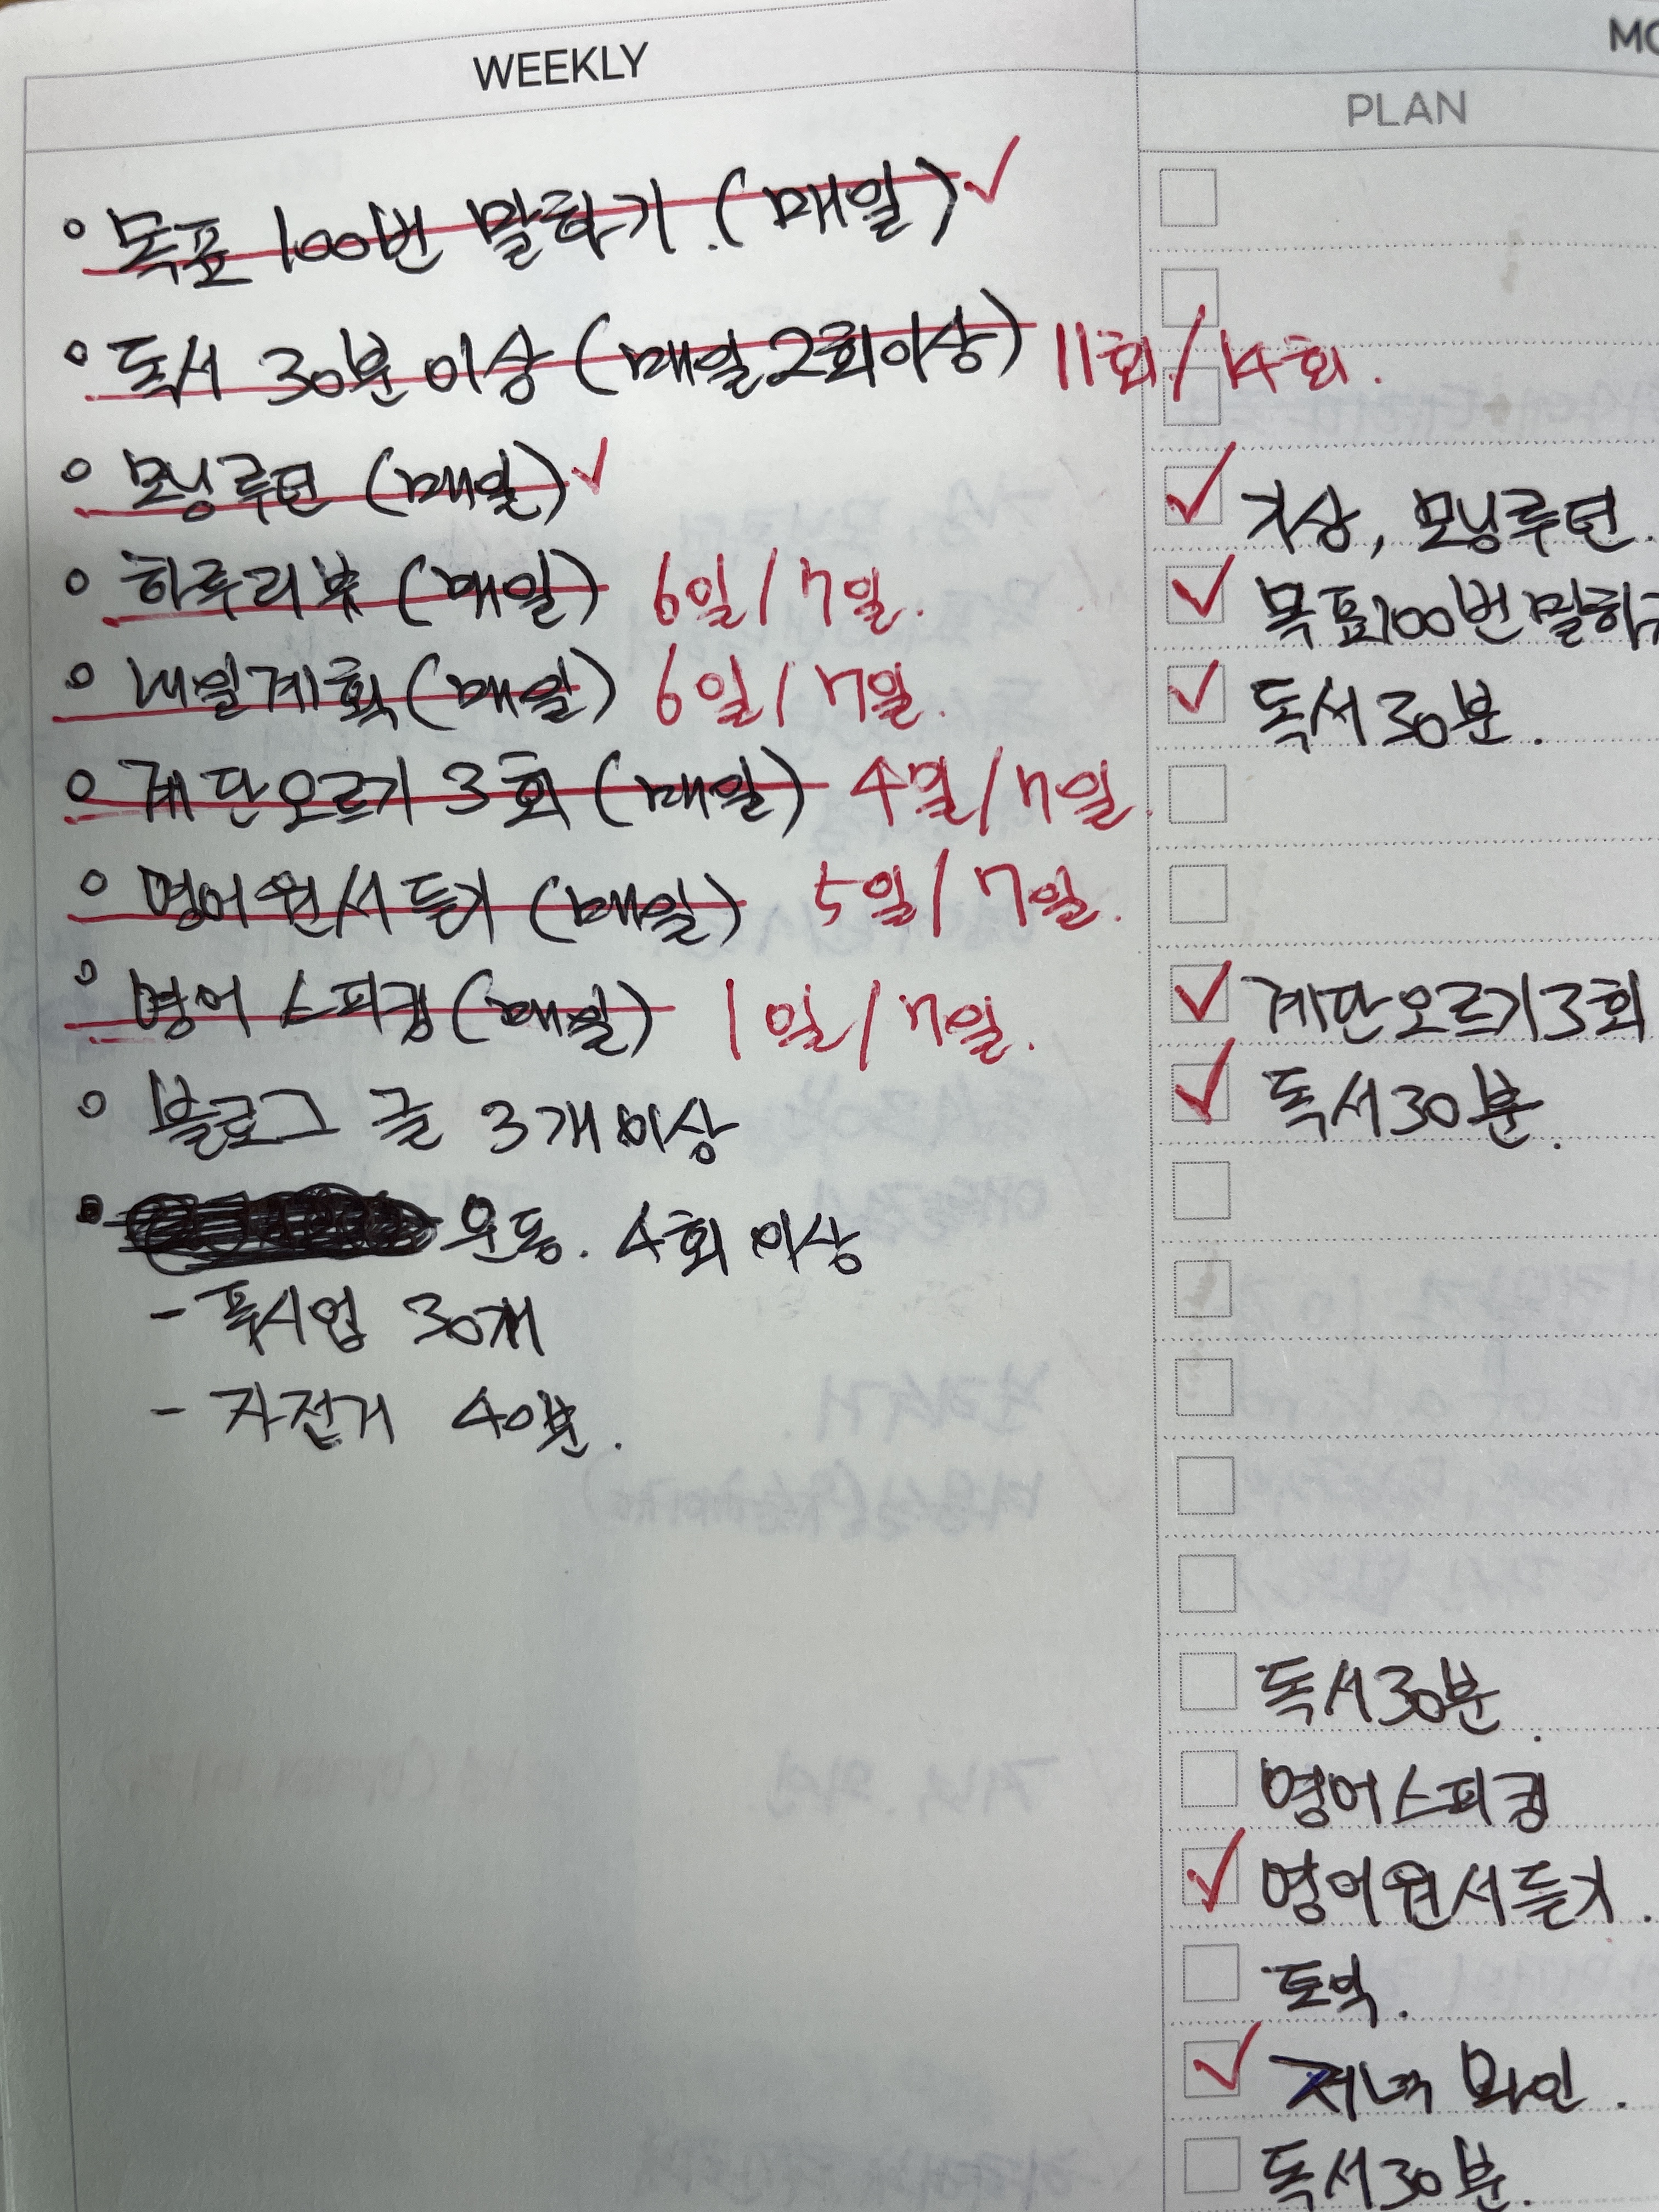 WEEKLY
목표 100번 말하기. (매일) ✓
독서 30분 이상 (매일 2회이상) 11회/14회.
모닝루틴 (매일) ✓
하루리뷰 (매일) 6일/7일.
내일계획 (매일) 6일/7일.
계단오르기 3회 (매일) 4일/7일.
영어원서듣기 (매일) 5일/7일.
영어스피킹 (매일) 1일/7일.
블로그 글 3개 이상
운동. 4회 이상
- 푹시업 30개
- 자전거 40분.
MO
PLAN
기상, 모닝루틴.
목표100번말하
독서30분.
계단오르기3회
독서30분.
독서30분.
영어스피킹
영어원서듣기.
토익.
저녁 와인.
독서30분.